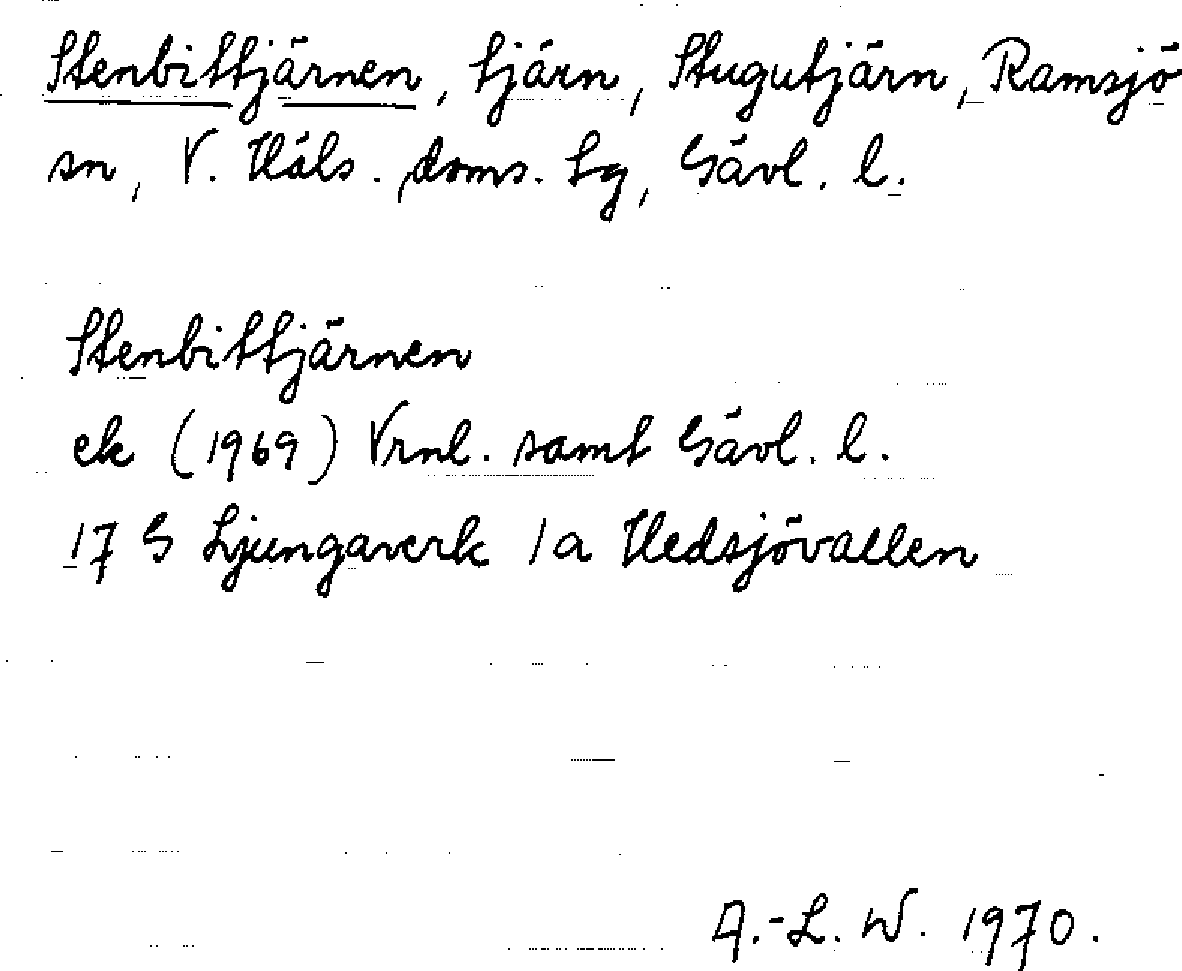 Stenbittjärnen, tjärn, Stugutjärn, Ramsjö
sn, V. Häls. doms. tg, Gävl. l.
Stenbittjärnen
ek (1969) Vrnl. samt Gävl. l.
17 G Ljungaverk 1a Hedsjövallen
A.-L. W. 1970.